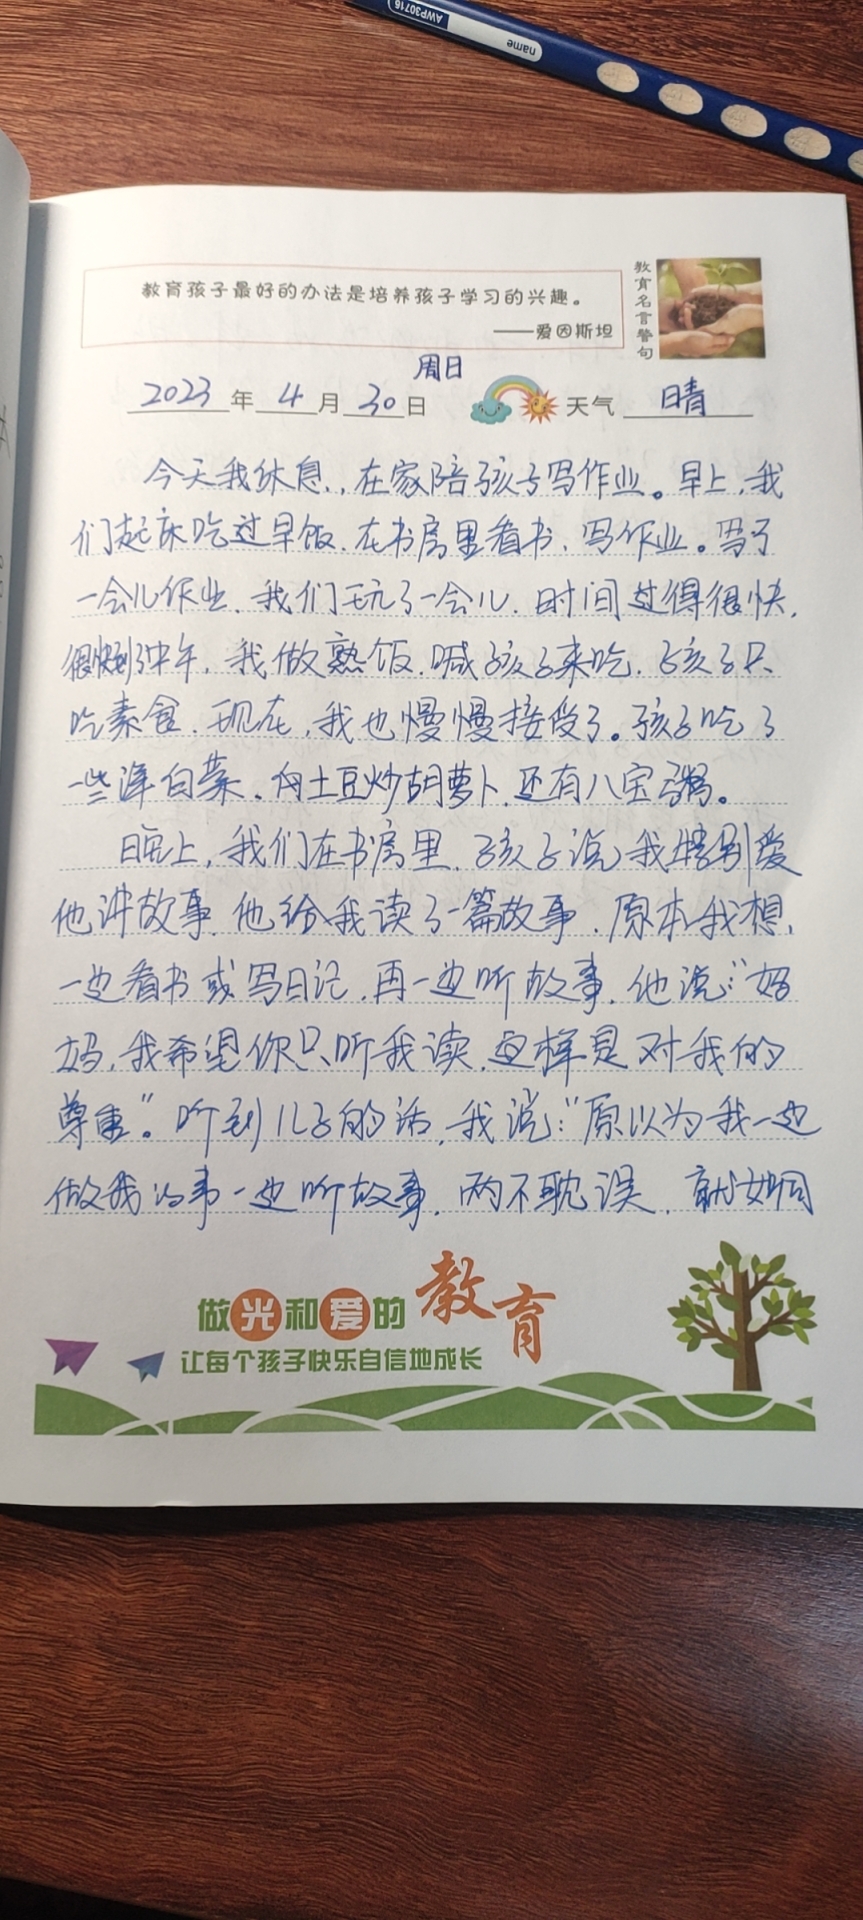 AWP30716
name
教育孩子最好的办法是培养孩子学习的兴趣。
——爱因斯坦
教育名言警句
周日
2023年4月30日 天气 晴
今天我休息,,在家陪孩子写作业。早上,我
们起床吃过早饭,在书房里看书、写作业。写了
一会儿作业,我们玩了一会儿,时间过得很快,
很快到了中午,我做熟饭,喊孩子来吃,孩子只
吃素食,现在,我也慢慢接受了。孩子吃了
一些洋白菜、土豆炒胡萝卜,还有八宝粥。
晚上,我们在书房里,孩子说我特别爱
他讲故事,他给我读了一篇故事,原本我想,
一边看书或写日记,再一边听故事,他说:“妈
妈,我希望你只听我读,这样是对我的
尊重”。听到儿子的话,我说:“原以为我一边
做我的事一边听故事,两不耽误,就如同
做光和爱的教育
让每个孩子快乐自信地成长